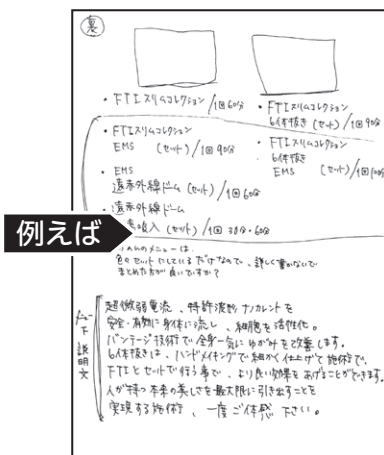 裏
・FTIスリムコレクション/1回60分
・FTIスリムコレクション
6体抜き(セット)/1回90分
・FTIスリムコレクション
EMS (セット)/1回90分
・FTIスリムコレクション
6体抜き
EMS (セット)/1回100分
・EMS
遠赤外線ドーム(セット)/1回60分
・遠赤外線ドーム
吸入(セット)/1回30分・60分
例えば
のメニューは、
色々セットにしているだけなので、詳しく書かないで
まとめた方が良いですか?
メニュー下説明文
超微弱電流、特許波形ナノカレントを
安全・有効に身体に流し、細胞を活性化。
バンテージ技術で全身一気にゆがみを改善します。
6体抜きは、ハンドメイキングで細かく仕上げて施術で、
FTIとセットで行う事で、より良い効果をあげることができます。
人が持つ本来の美しさを最大限に引き出すことを
実現する施術、一度ご体感下さい。